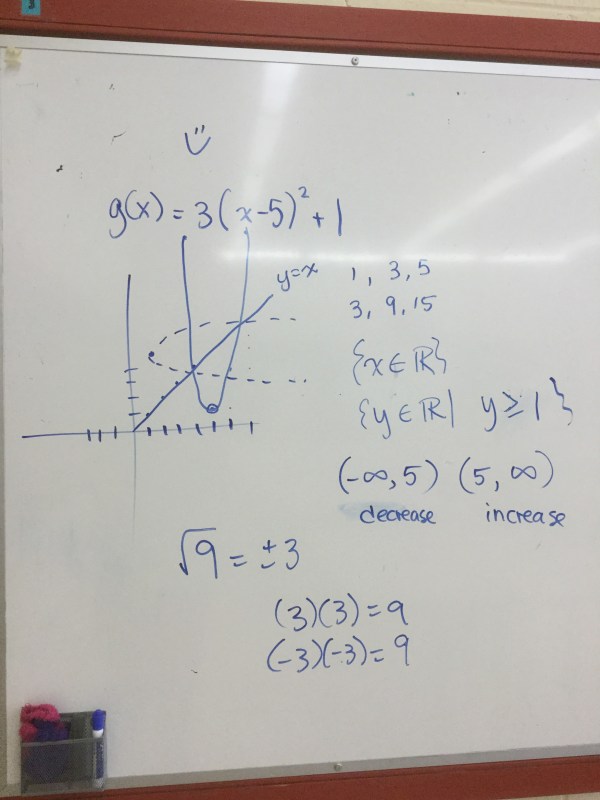 g(x) = 3(x-5)² + 1
y=x
1, 3, 5
3, 9, 15
{x∈ℝ}
{y∈ℝ| y≥1}
(-∞,5) (5,∞)
decrease increase
√9 = ±3
(3)(3)=9
(-3)(-3)=9